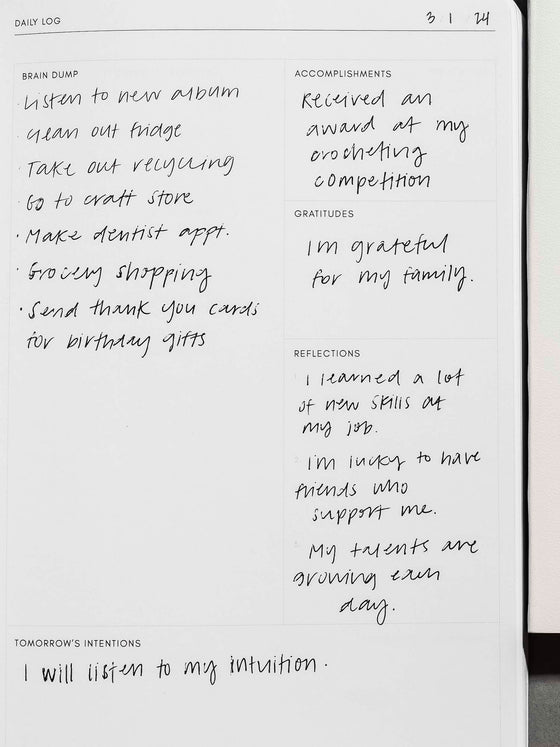 DAILY LOG
3 1 24
BRAIN DUMP
· Listen to new album
· Clean out fridge
· Take out recycling
· Go to craft store
· Make dentist appt.
· Grocery shopping
· Send thank you cards
for birthday gifts
ACCOMPLISHMENTS
Received an
award at my
crocheting
competition
GRATITUDES
Im grateful
for my family.
REFLECTIONS
I learned a lot
of new skills at
my job.
I'm lucky to have
friends who
support me.
My talents are
growing each
day.
TOMORROW'S INTENTIONS
I will listen to my intuition.